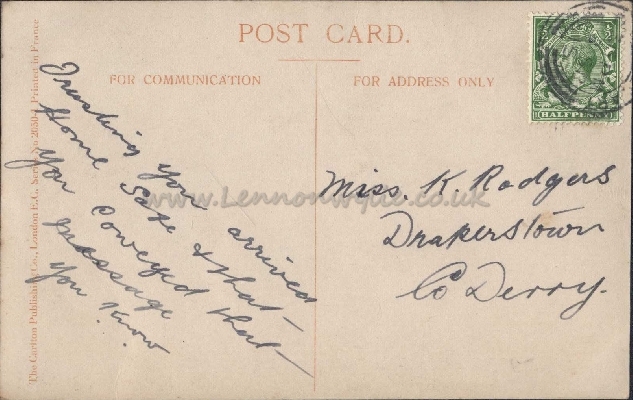 POST CARD.
FOR COMMUNICATION
FOR ADDRESS ONLY
HALFPENNY
Trusting you arrived
home safe & that
you conveyed that
message
you know
Miss. K. Rodgers
Drakerstown
Co Derry.
www.Lennonwylie.co.uk
The Carlton Publishing Co., London E.C., Series No 2650/1 Printed in France